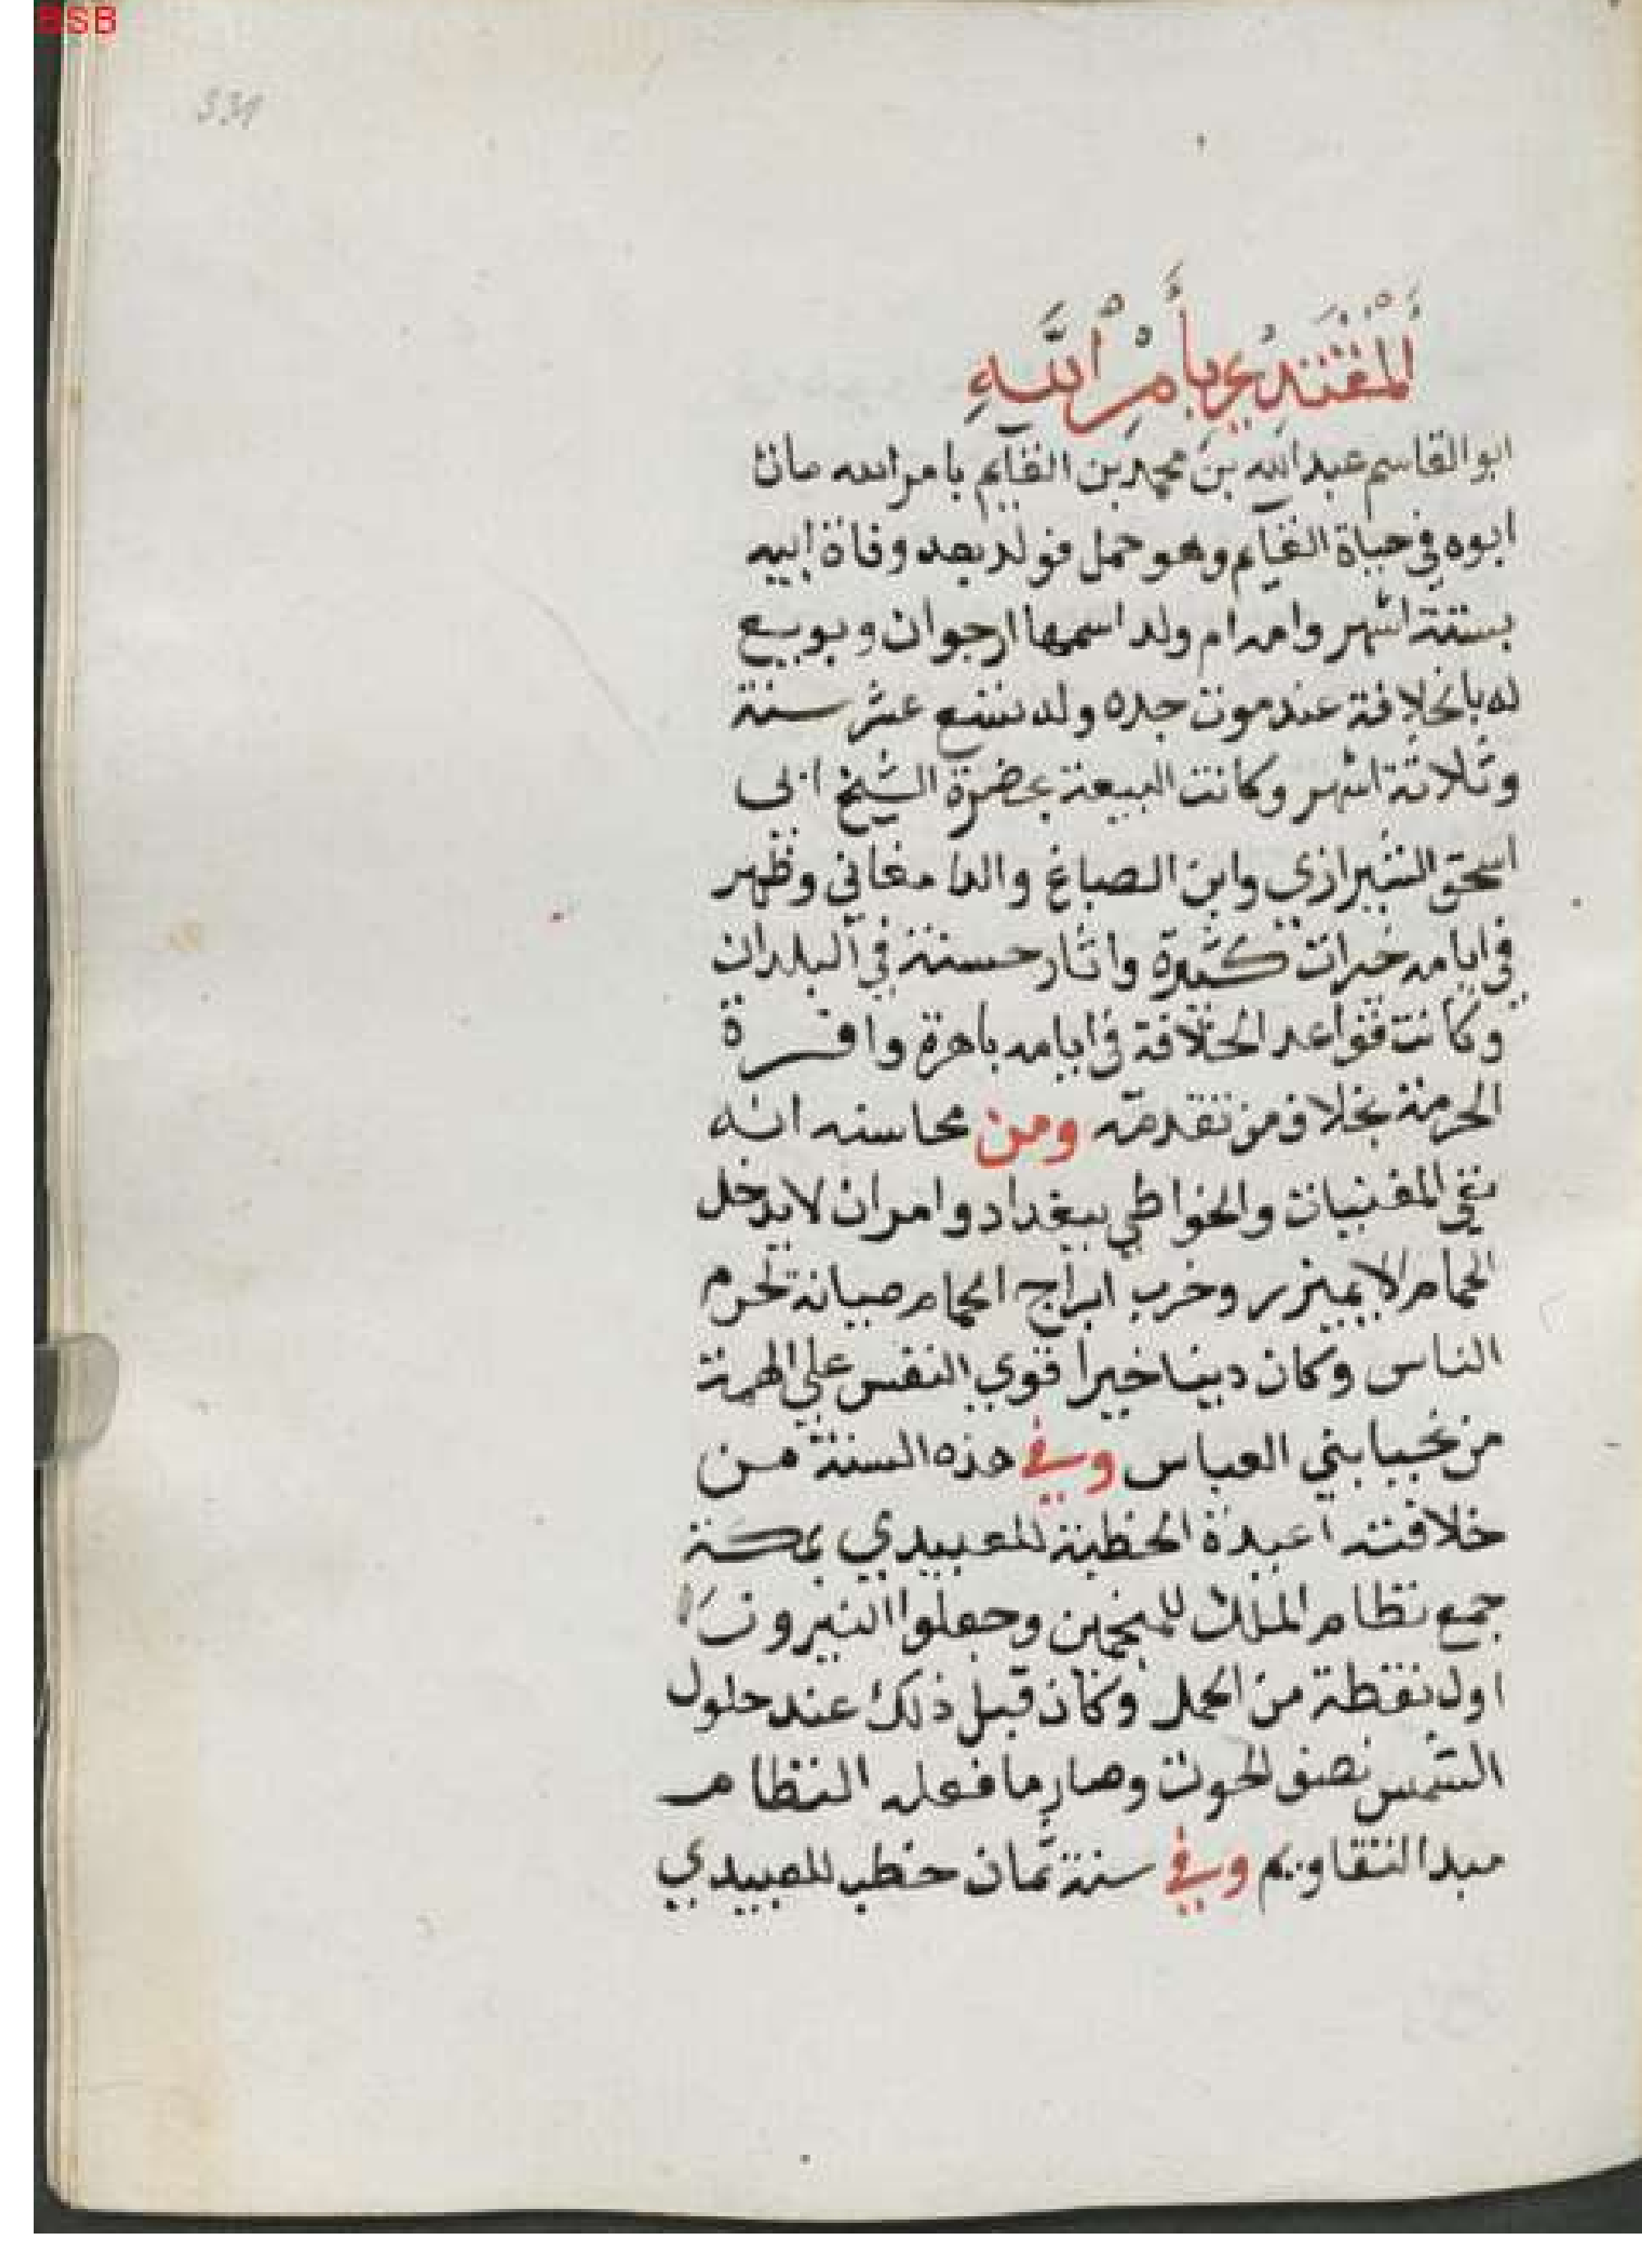 BSB
331
اَلْمُقْتَدِيُ بِأَمْرِ اللَّهِ
ابو القاسم عبد الله بن محمد بن القايم بامر الله مات
ابوه في حياة القايم وهو حمل فولد بعد وفاة ابيه
بستة اشهر وامه ام ولد اسمها ارجوان وبويع
له بالخلافة عند موت جده وله تسع عشر سنة
وثلاثة اشهر وكانت البيعة بحضرة الشيخ ابي
اسحق الشيرازي وابن الصباغ والدامغاني وظهر
في ايامه خيرات كثيرة واثار حسنة في البلدان
وكانت قواعد الخلافة في ايامه باهرة وافرة
الحرمة بخلاف من تقدمه ومن محاسنه انه
نفي المغنيات والخواطي ببغداد وامر ان لا يدخل
الحمام الا بميزر وخرب ابراج الحمام صيانة لحرم
الناس وكان دينا خيرا قوي النفس علي الهمة
من نجبا بني العباس وفي هذه السنة من
خلافته اعيدة الخطبة للعبيدي بمكة
جمع نظام الملك للمنجمين وجعلوا النيروز
اول نقطة من الحمل وكان قبل ذلك عند حلول
الشمس نصف الحوت وصار ما فعله النظام
مبدا التقاويم وفي سنة ثمان خطب للعبيدي